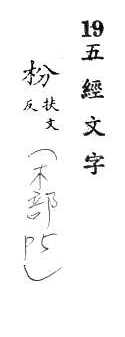 19五經文字
枌扶文反(木部P5)